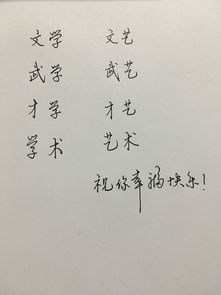 文学 文艺
武学 武艺
才学 才艺
学术 艺术
祝你幸福快乐!